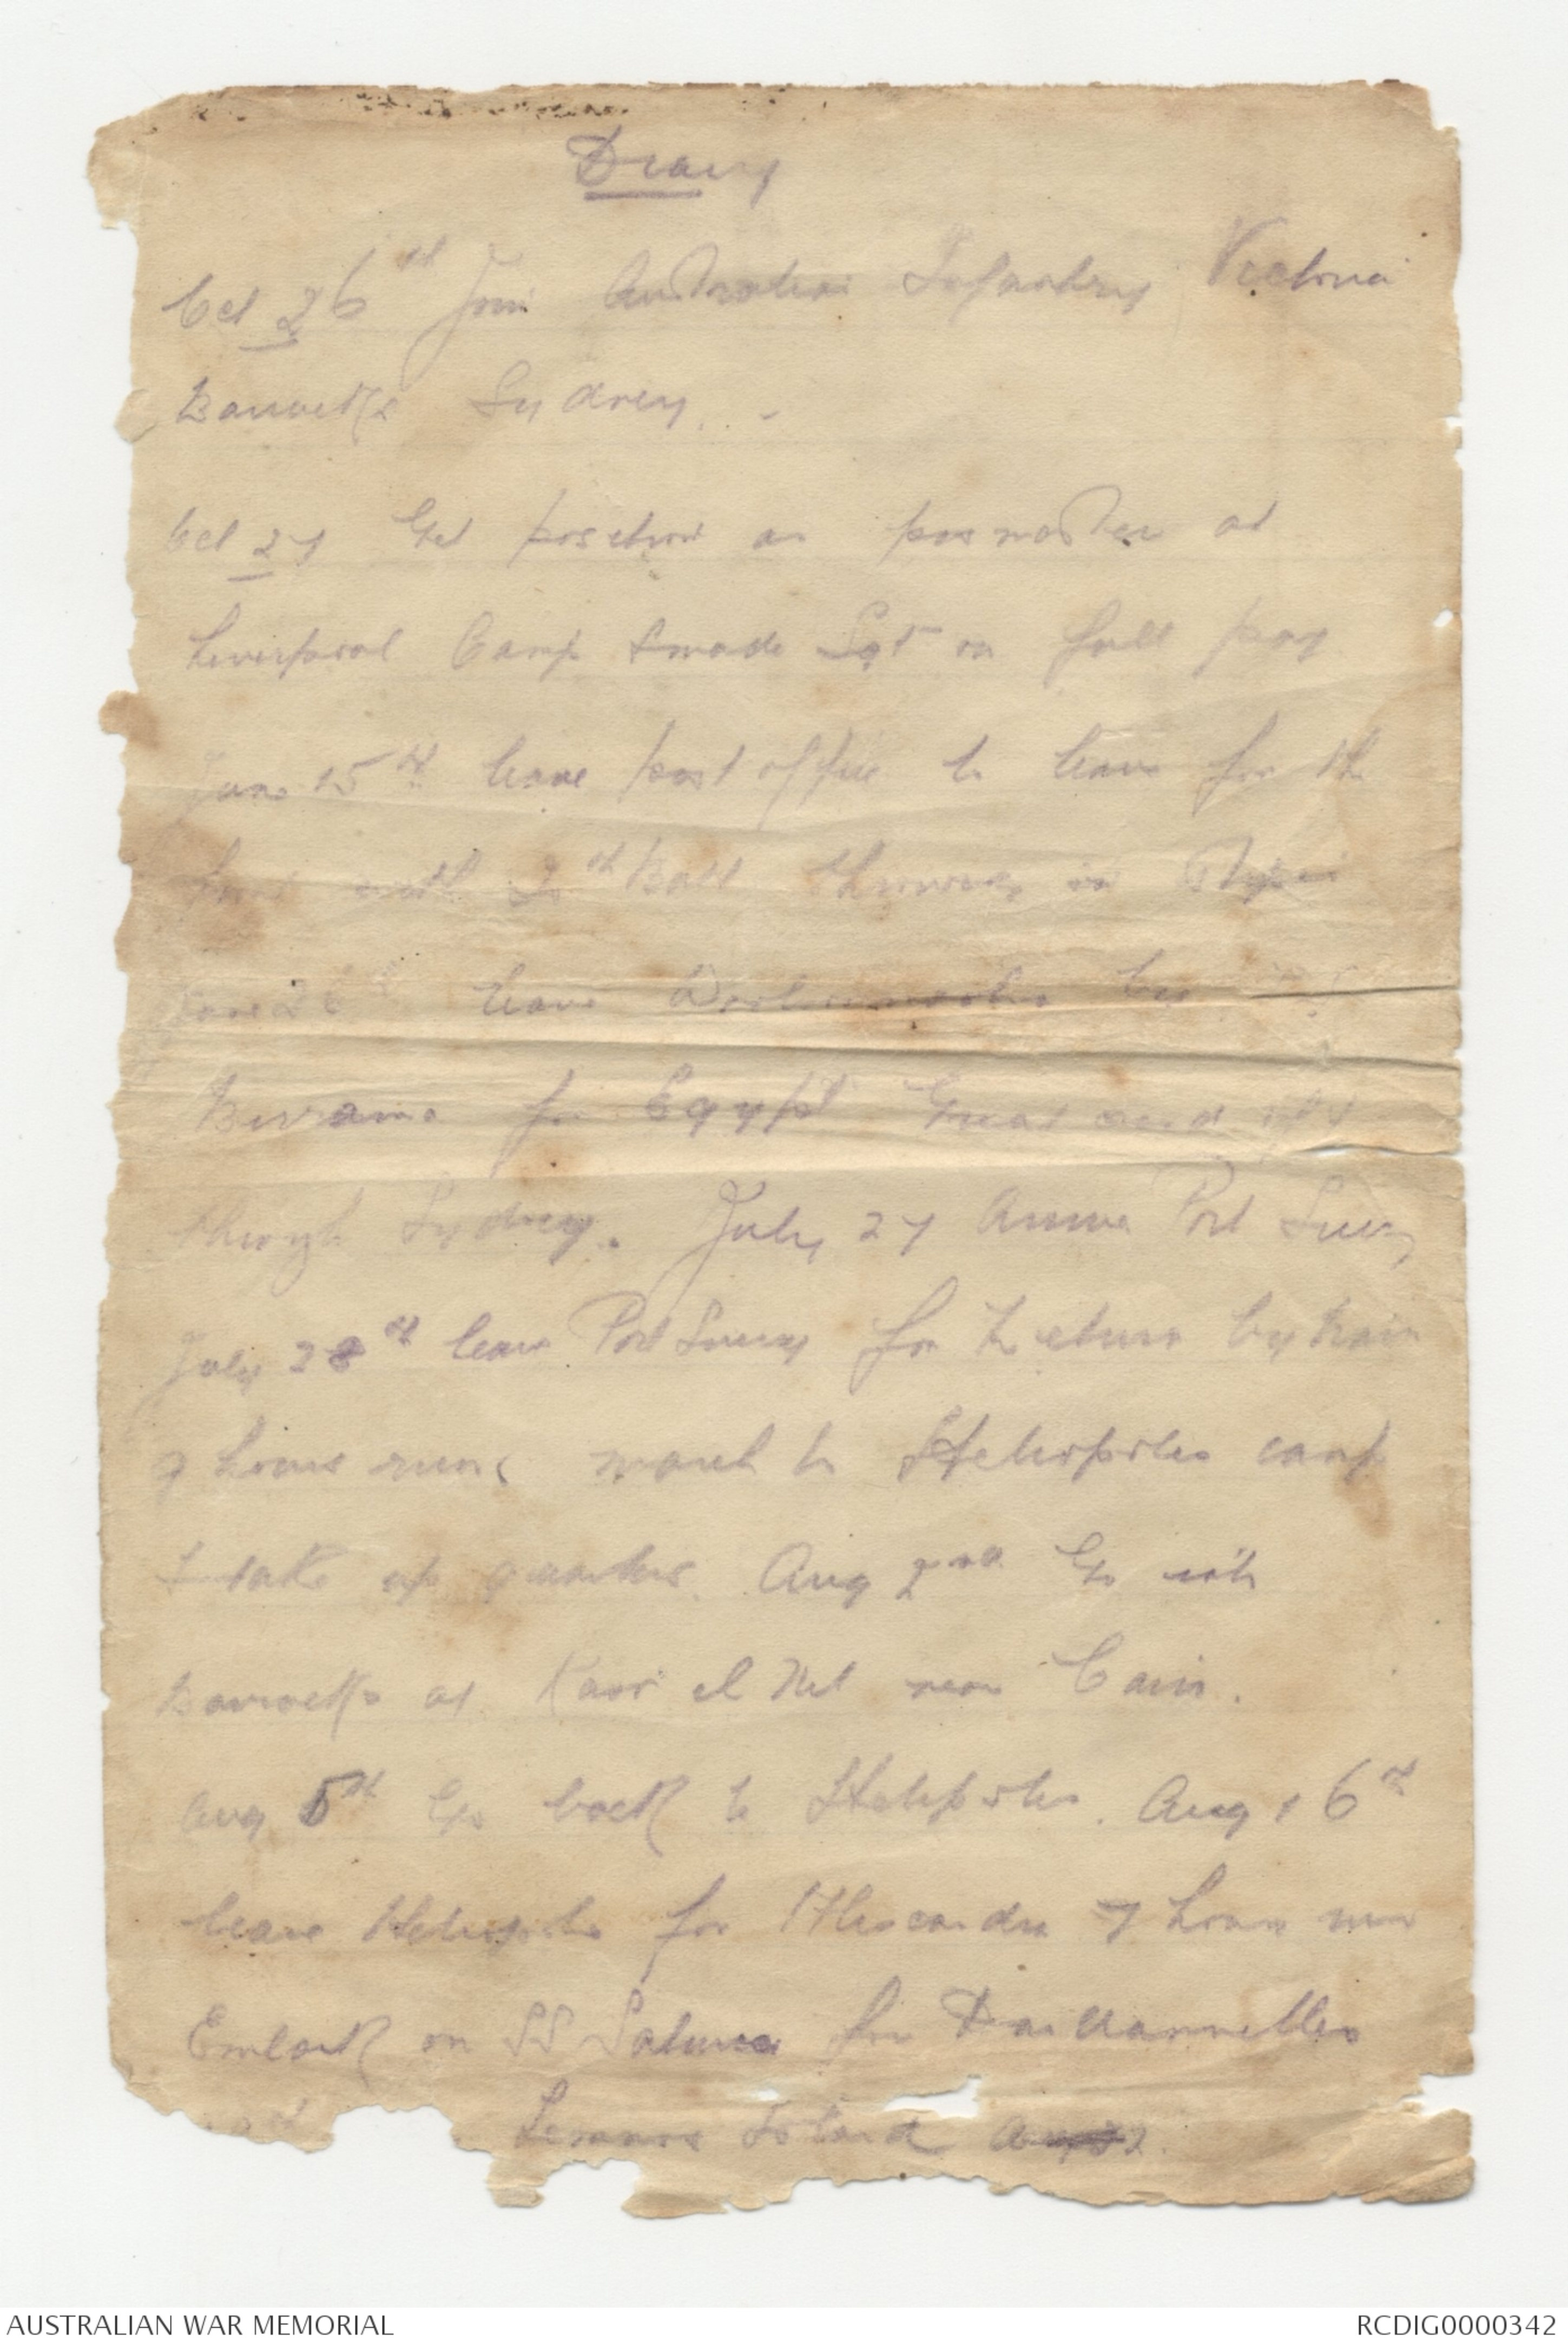 Diary
Oct 26th Join Australian Infantry Victoria
Barracks Sydney.
Oct 27 Get position as posmaster at
Liverpool Camp & made Sgt on full pay
June 15th leave post office to leave for th
with 20th Batt
June 26 leave Woolloomooloo by
Berrima for Egypt Great send off
through Sydney. July 27 Arrive Port Suez
July 28th leave Port Suez for by train
9 hours run march to Heliopolis camp
& take up quarters. Aug 2nd Go into
Barracks at Kasr el Nel near Cairo.
Aug 5th Go back to Heliopolis. Aug 16th
leave Heliopolis for Alexandra 7 hours run
Embark on SS Saturnia for Dardannelles
Lemnos Island
AUSTRALIAN WAR MEMORIAL
RCDIG0000342